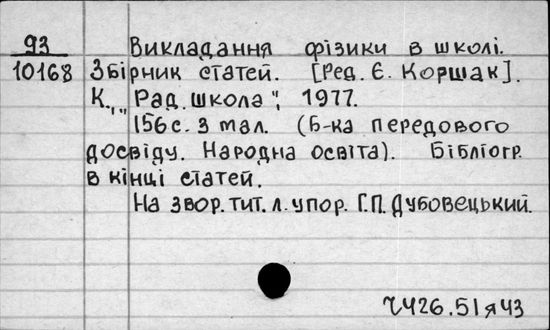 93 Викладання фізики в школі.
10168 Збірник статей. [Ред. Є. Коршак].
К., „Рад. школа“, 1977.
156 с. з мал. (Б-ка передового
досвіду. Народна освіта). Бібліогр.
в кінці статей.
На звор. тит. л. упор. Г.П. Дубовецький.
Ч426.51я43